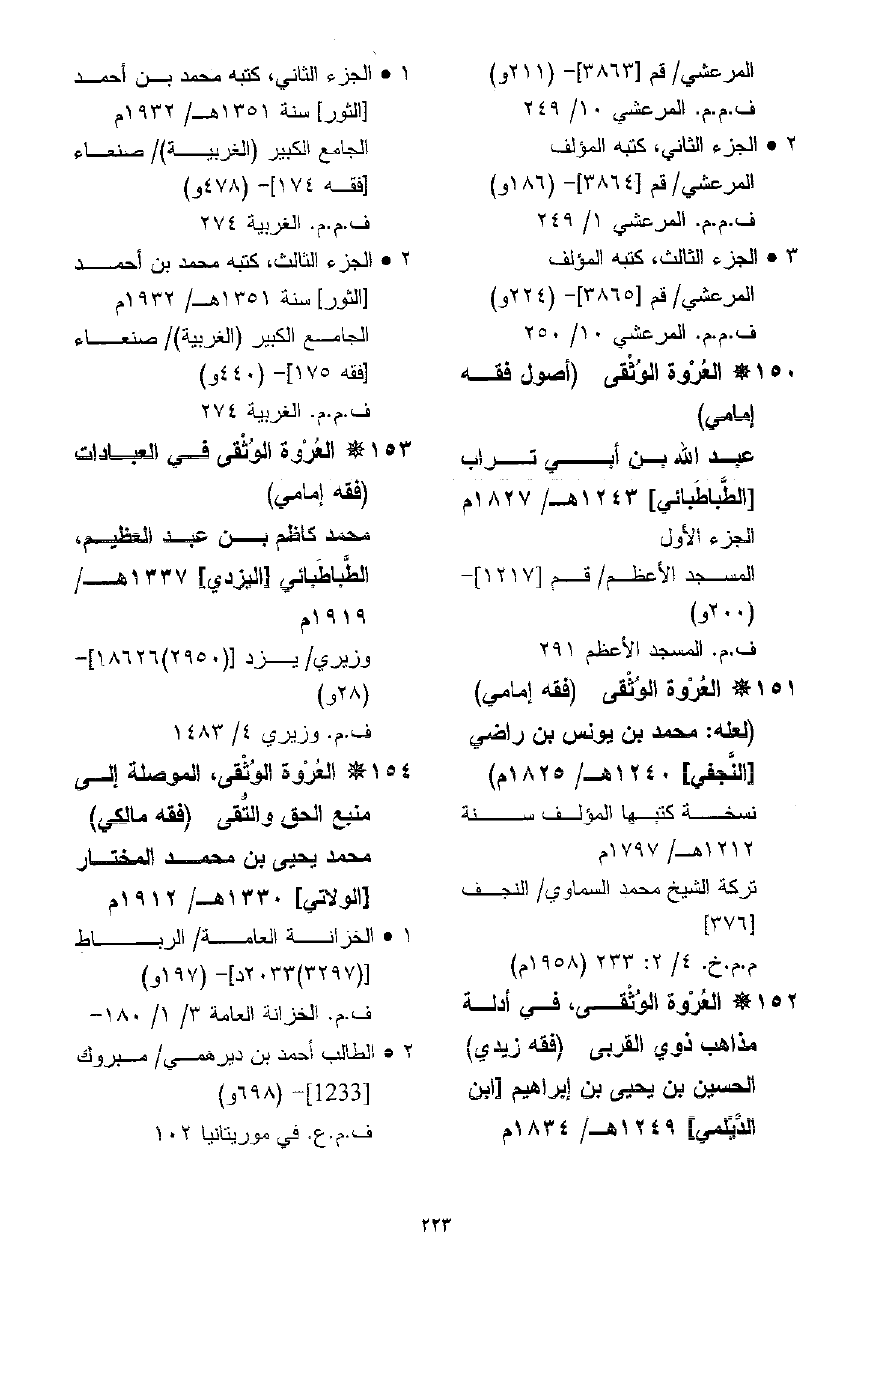 المرعشي/ قم [٣٨٦٣]- (٢١١و)
ف.م.م. المرعشي ١٠/ ٢٤٩
٢ • الجزء الثاني، كتبه المؤلف
المرعشي/ قم [٣٨٦٤]- (١٨٦و)
ف.م.م. المرعشي ١/ ٢٤٩
٣ • الجزء الثالث، كتبه المؤلف
المرعشي/ قم [٣٨٦٥]- (٢٢٤و)
ف.م.م. المرعشي ١٠/ ٢٥٠
١٥٠ * العُرْوة الوُثْقى (أصول فقه
إمامي)
عبد الله بن أبي تراب
[الطَّباطَبائي] ١٢٤٣هـ/ ١٨٢٧م
الجزء الأول
المسجد الأعظم/ قم [١٢١٧]-
(٢٠٠و)
ف.م. المسجد الأعظم ٢٩١
١٥١ * العُرْوة الوُثْقى (فقه إمامي)
(لعله: محمد بن يونس بن راضي
[النَّجفي] ١٢٤٠هـ/ ١٨٢٥م)
نسخة كتبها المؤلف سنة
١٢١٢هـ/ ١٧٩٧م
تركة الشيخ محمد السماوي/ النجف
[٣٧٦]
م.م.خ. ٤/ ٢: ٢٣٣ (١٩٥٨م)
١٥٢ * العُرْوة الوُثْقى، في أدلة
مذاهب ذوي القربى (فقه زيدي)
الحسين بن يحيى بن إبراهيم [ابن
الدَّيْلمي] ١٢٤٩هـ/ ١٨٣٤م
١ • الجزء الثاني، كتبه محمد بن أحمد
[الثور] سنة ١٣٥١هـ/ ١٩٣٢م
الجامع الكبير (الغربية)/ صنعاء
[فقه ١٧٤]- (٤٧٨و)
ف.م.م. الغربية ٢٧٤
٢ • الجزء الثالث، كتبه محمد بن أحمد
[الثور] سنة ١٣٥١هـ/ ١٩٣٢م
الجامع الكبير (الغربية)/ صنعاء
[فقه ١٧٥]- (٤٤٠و)
ف.م.م. الغربية ٢٧٤
١٥٣ * العُرْوة الوُثْقى في العبادات
(فقه إمامي)
محمد كاظم بن عبد العظيم،
الطَّباطَبائي [اليزدي] ١٣٣٧هـ/
١٩١٩م
وزيري/ يزد [(٢٩٥٠)١٨٦٢٦]-
(٢٨و)
ف.م. وزيري ٤/ ١٤٨٣
١٥٤ * العُرْوة الوُثْقى، الموصلة إلى
منبع الحق والتُّقى (فقه مالكي)
محمد يحيى بن محمد المختار
[الولاتي] ١٣٣٠هـ/ ١٩١٢م
١ • الخزانة العامة/ الرباط
[(٣٢٩٧)٢٠٣٣د]- (١٩٧و)
ف.م. الخزانة العامة ٣/ ١/ ١٨٠-
٢ • الطالب أحمد بن ديرهمي/ مبروك
[1233]- (٦٩٨و)
ف.م.ع. في موريتانيا ١٠٢
٢٢٣